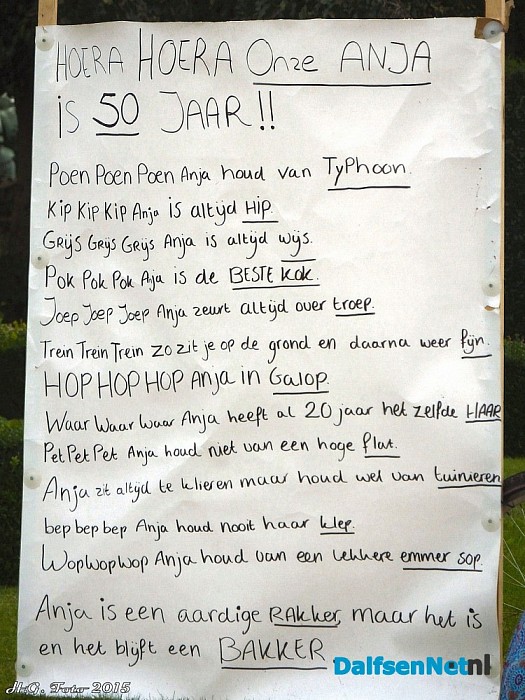 HOERA HOERA Onze ANJA
is 50 JAAR!!
Poen Poen Poen Anja houd van Typhoon.
Kip Kip Kip Anja is altijd Hip.
Grijs Grijs Grijs Anja is altijd wijs.
Pok Pok Pok Anja is de BESTE kok.
Joep Joep Joep Anja zeurt altijd over troep.
Trein Trein Trein zo zit je op de grond en daarna weer fijn.
HOP HOP HOP Anja in Galop.
Waar Waar Waar Anja heeft al 20 jaar het zelfde HAAR
Pet Pet Pet Anja houd niet van een hoge flat.
Anja zit altijd te klieren maar houd wel van tuinieren
bep bep bep Anja houd nooit haar klep.
Wop wop wop Anja houd van een lekkere emmer sop.
Anja is een aardige RAkker, maar het is
en het blijft een BAKKER
DalfsenNet.nl
H.G. Foto 2015